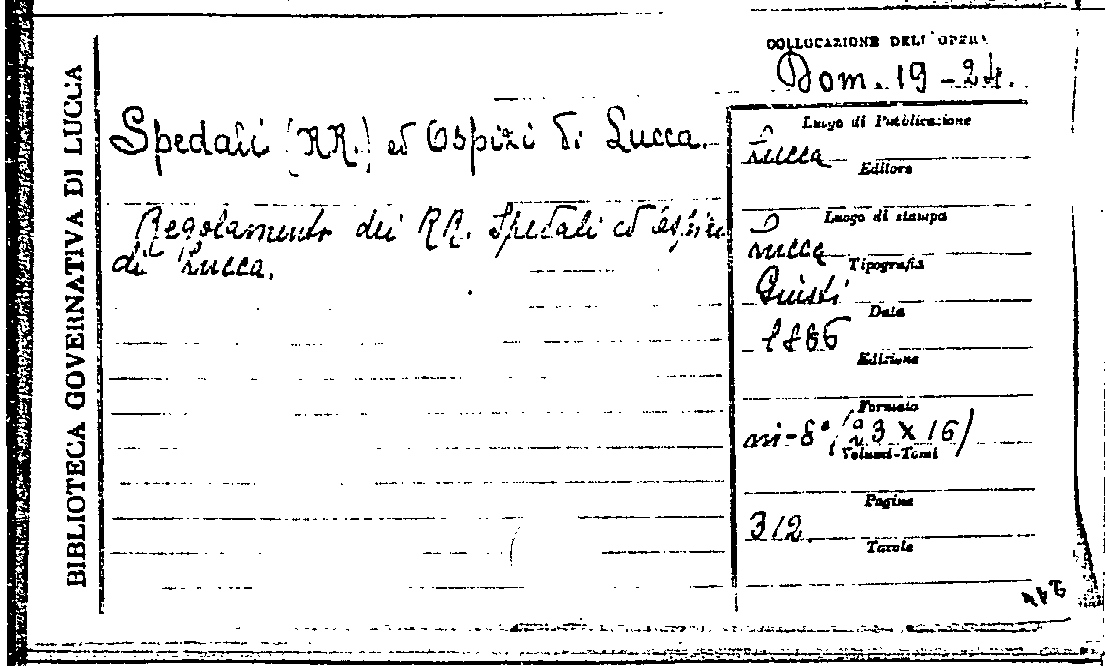 BIBLIOTECA GOVERNATIVA DI LUCCA
COLLOCAZIONE DELL'OPERA
Dom. 19-24.
Spedali (RR.) ed Ospizi di Lucca.
Regolamento dei RR. Spedali ed Ospizi
di Lucca.
Luogo di Pubblicazione
Lucca
Editore
Luogo di stampa
Lucca
Tipografia
Giusti
Data
Edizione
Formato
in-8° (23 X 16)
Volumi-Tomi
Pagine
312
Tavole